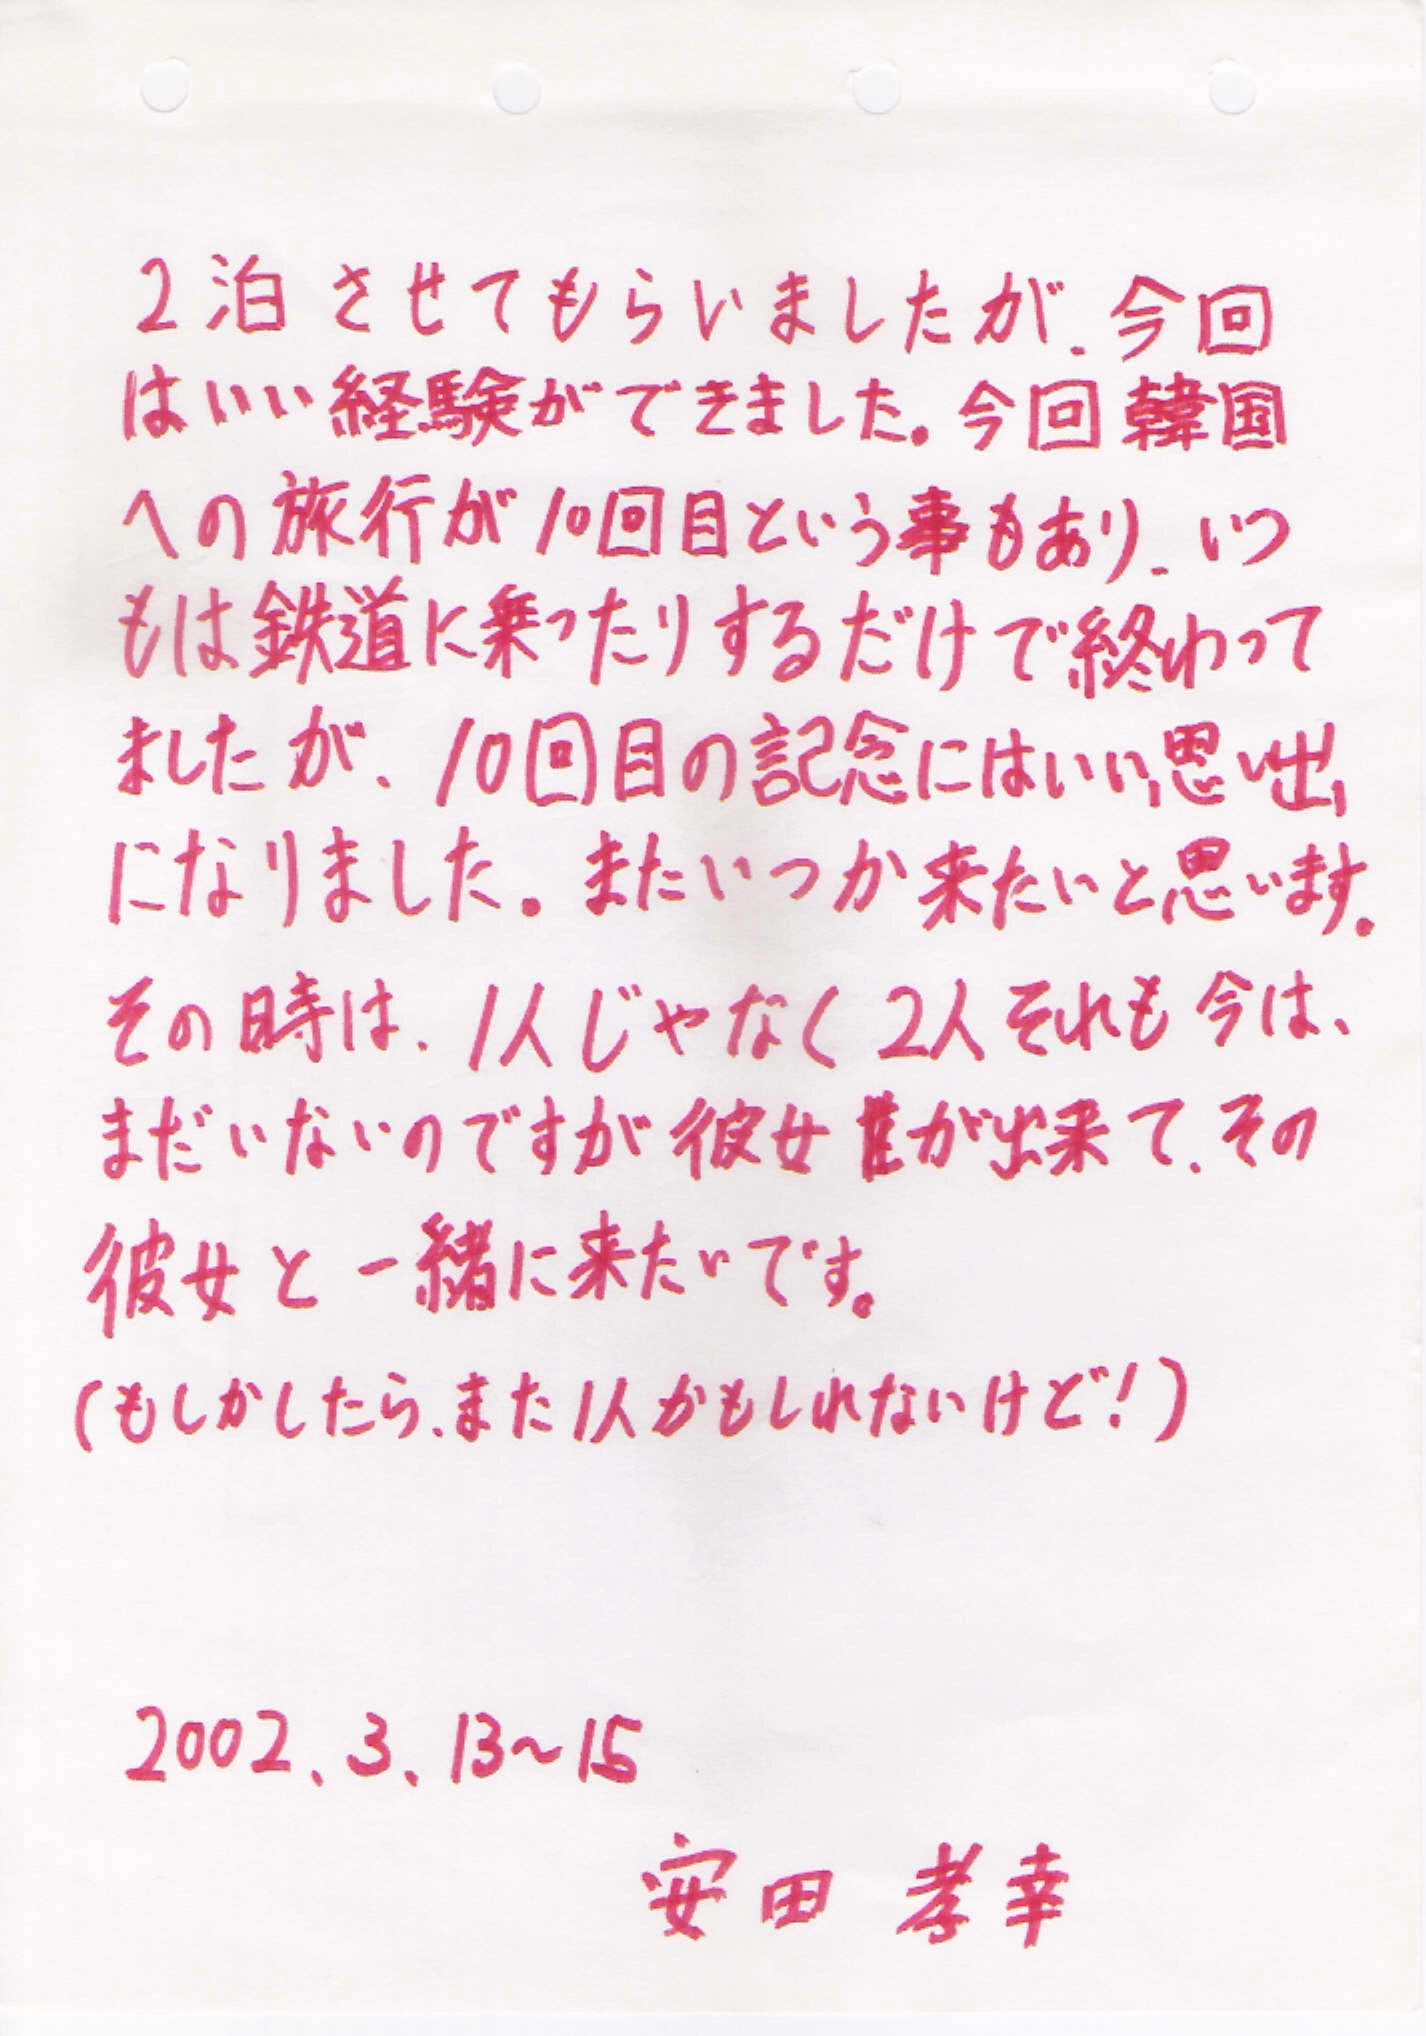 2泊させてもらいましたが、今回
はいい経験ができました。今回韓国
への旅行が10回目という事もあり、いつ
もは鉄道に乗ったりするだけで終わって
ましたが、10回目の記念にはいい思い出
になりました。またいつか来たいと思います。
その時は、1人じゃなく2人それも今は、
まだいないのですが彼女が出来て、その
彼女と一緒に来たいです。
(もしかしたら、また1人かもしれないけど!)
2002.3.13~15
安田 孝幸